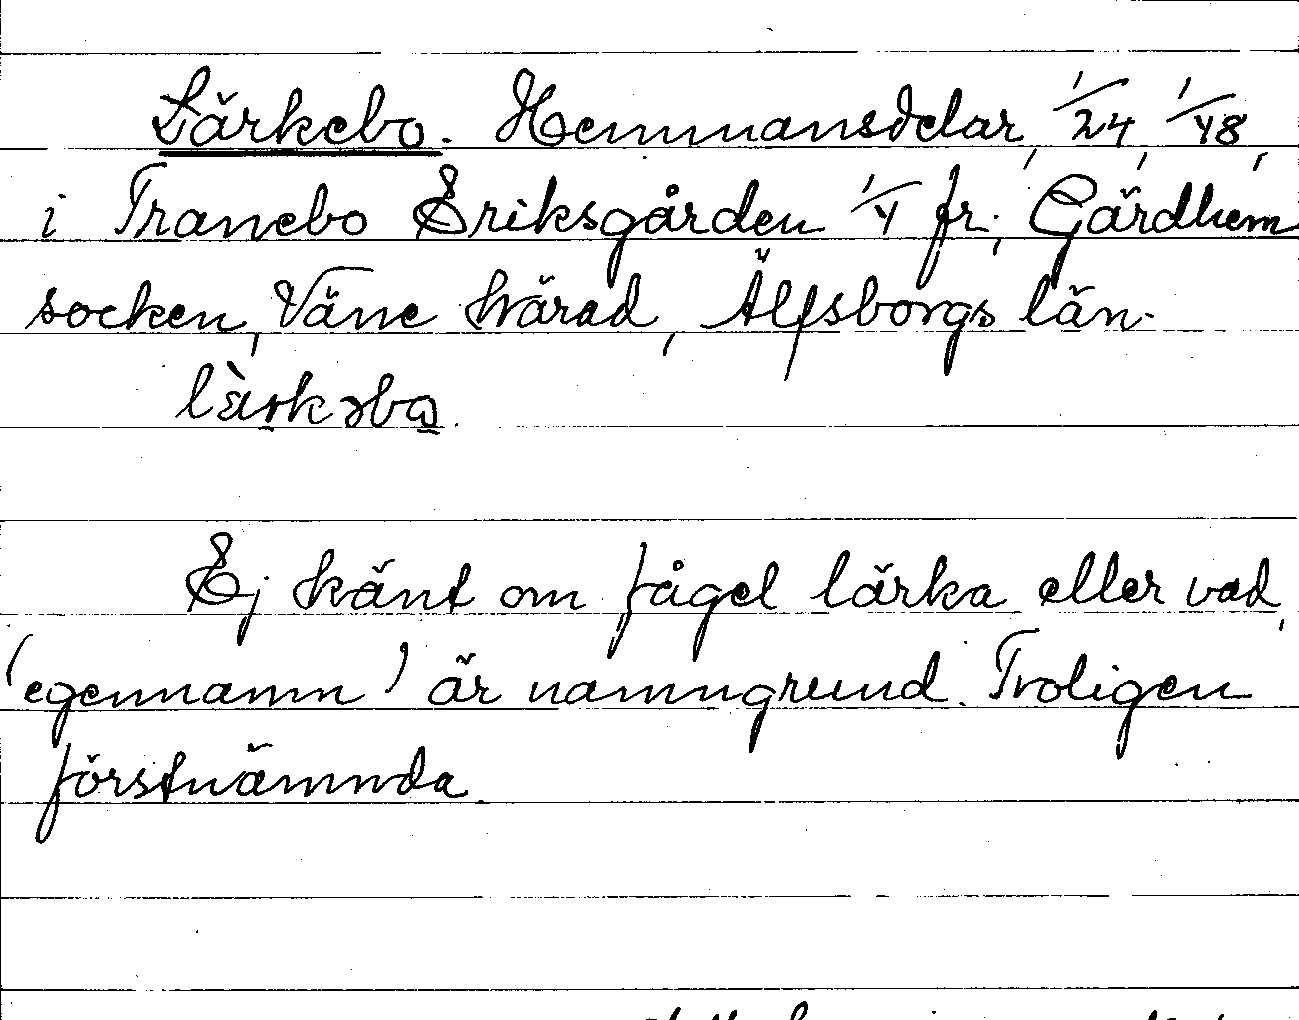 Lärkebo. Hemmansdelar, 1/24, 1/48,
i Tranebo Eriksgården 1/4 fr., Gärdhem
socken, Väne härad, Älfsborgs län.
làrkəbo.
Ej känt om fågel lärka eller vad,
(egennamn) är namngrund. Troligen
förstnämnda.